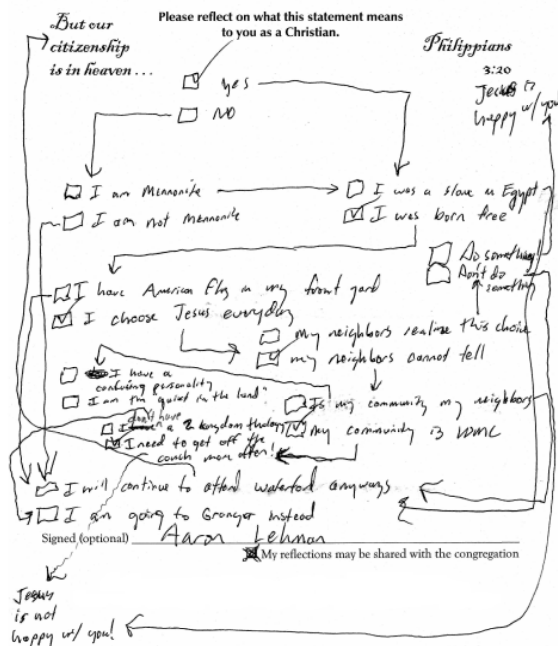 But our
citizenship
is in heaven . . .
Please reflect on what this statement means
to you as a Christian.
Philippians
3:20
Jesus is
happy w/ you
yes
NO
I am Mennonite
I am not mennonite
I was a slave in Egypt
I was born free
Do something!
Don't do
something
I have American Flag in my front yard
I choose Jesus everyday
My neighbors realize this choice
my neighbors cannot tell
I have a
confusing personality
I am the "quiet in the land"
I don't have a 2 kingdom theology
I need to get off the
couch more often!
Is my community my neighbors
My community is WMC
I will continue to attend waterford anyways
I am going to Granger instead
Signed (optional) Aaron Lehman
My reflections may be shared with the congregation
Jesus
is not
happy w/ you!